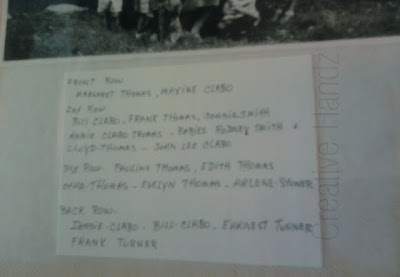 FRONT ROW
MARGARET THOMAS, MAXINE CLABO
2nd ROW
BILL CLABO, FRANK THOMAS, DONNIE SMITH
ANNIE CLABO THOMAS - BABIES RODNEY SMITH +
LLOYD THOMAS - JOHN LEE CLABO
3rd ROW. PAULINE THOMAS, EDITH THOMAS
THOMAS - EVELYN THOMAS - ARLENE STONER
BACK ROW.
CLABO - BILL CLABO - EARNEST TURNER
FRANK TURNER
Creative Handz